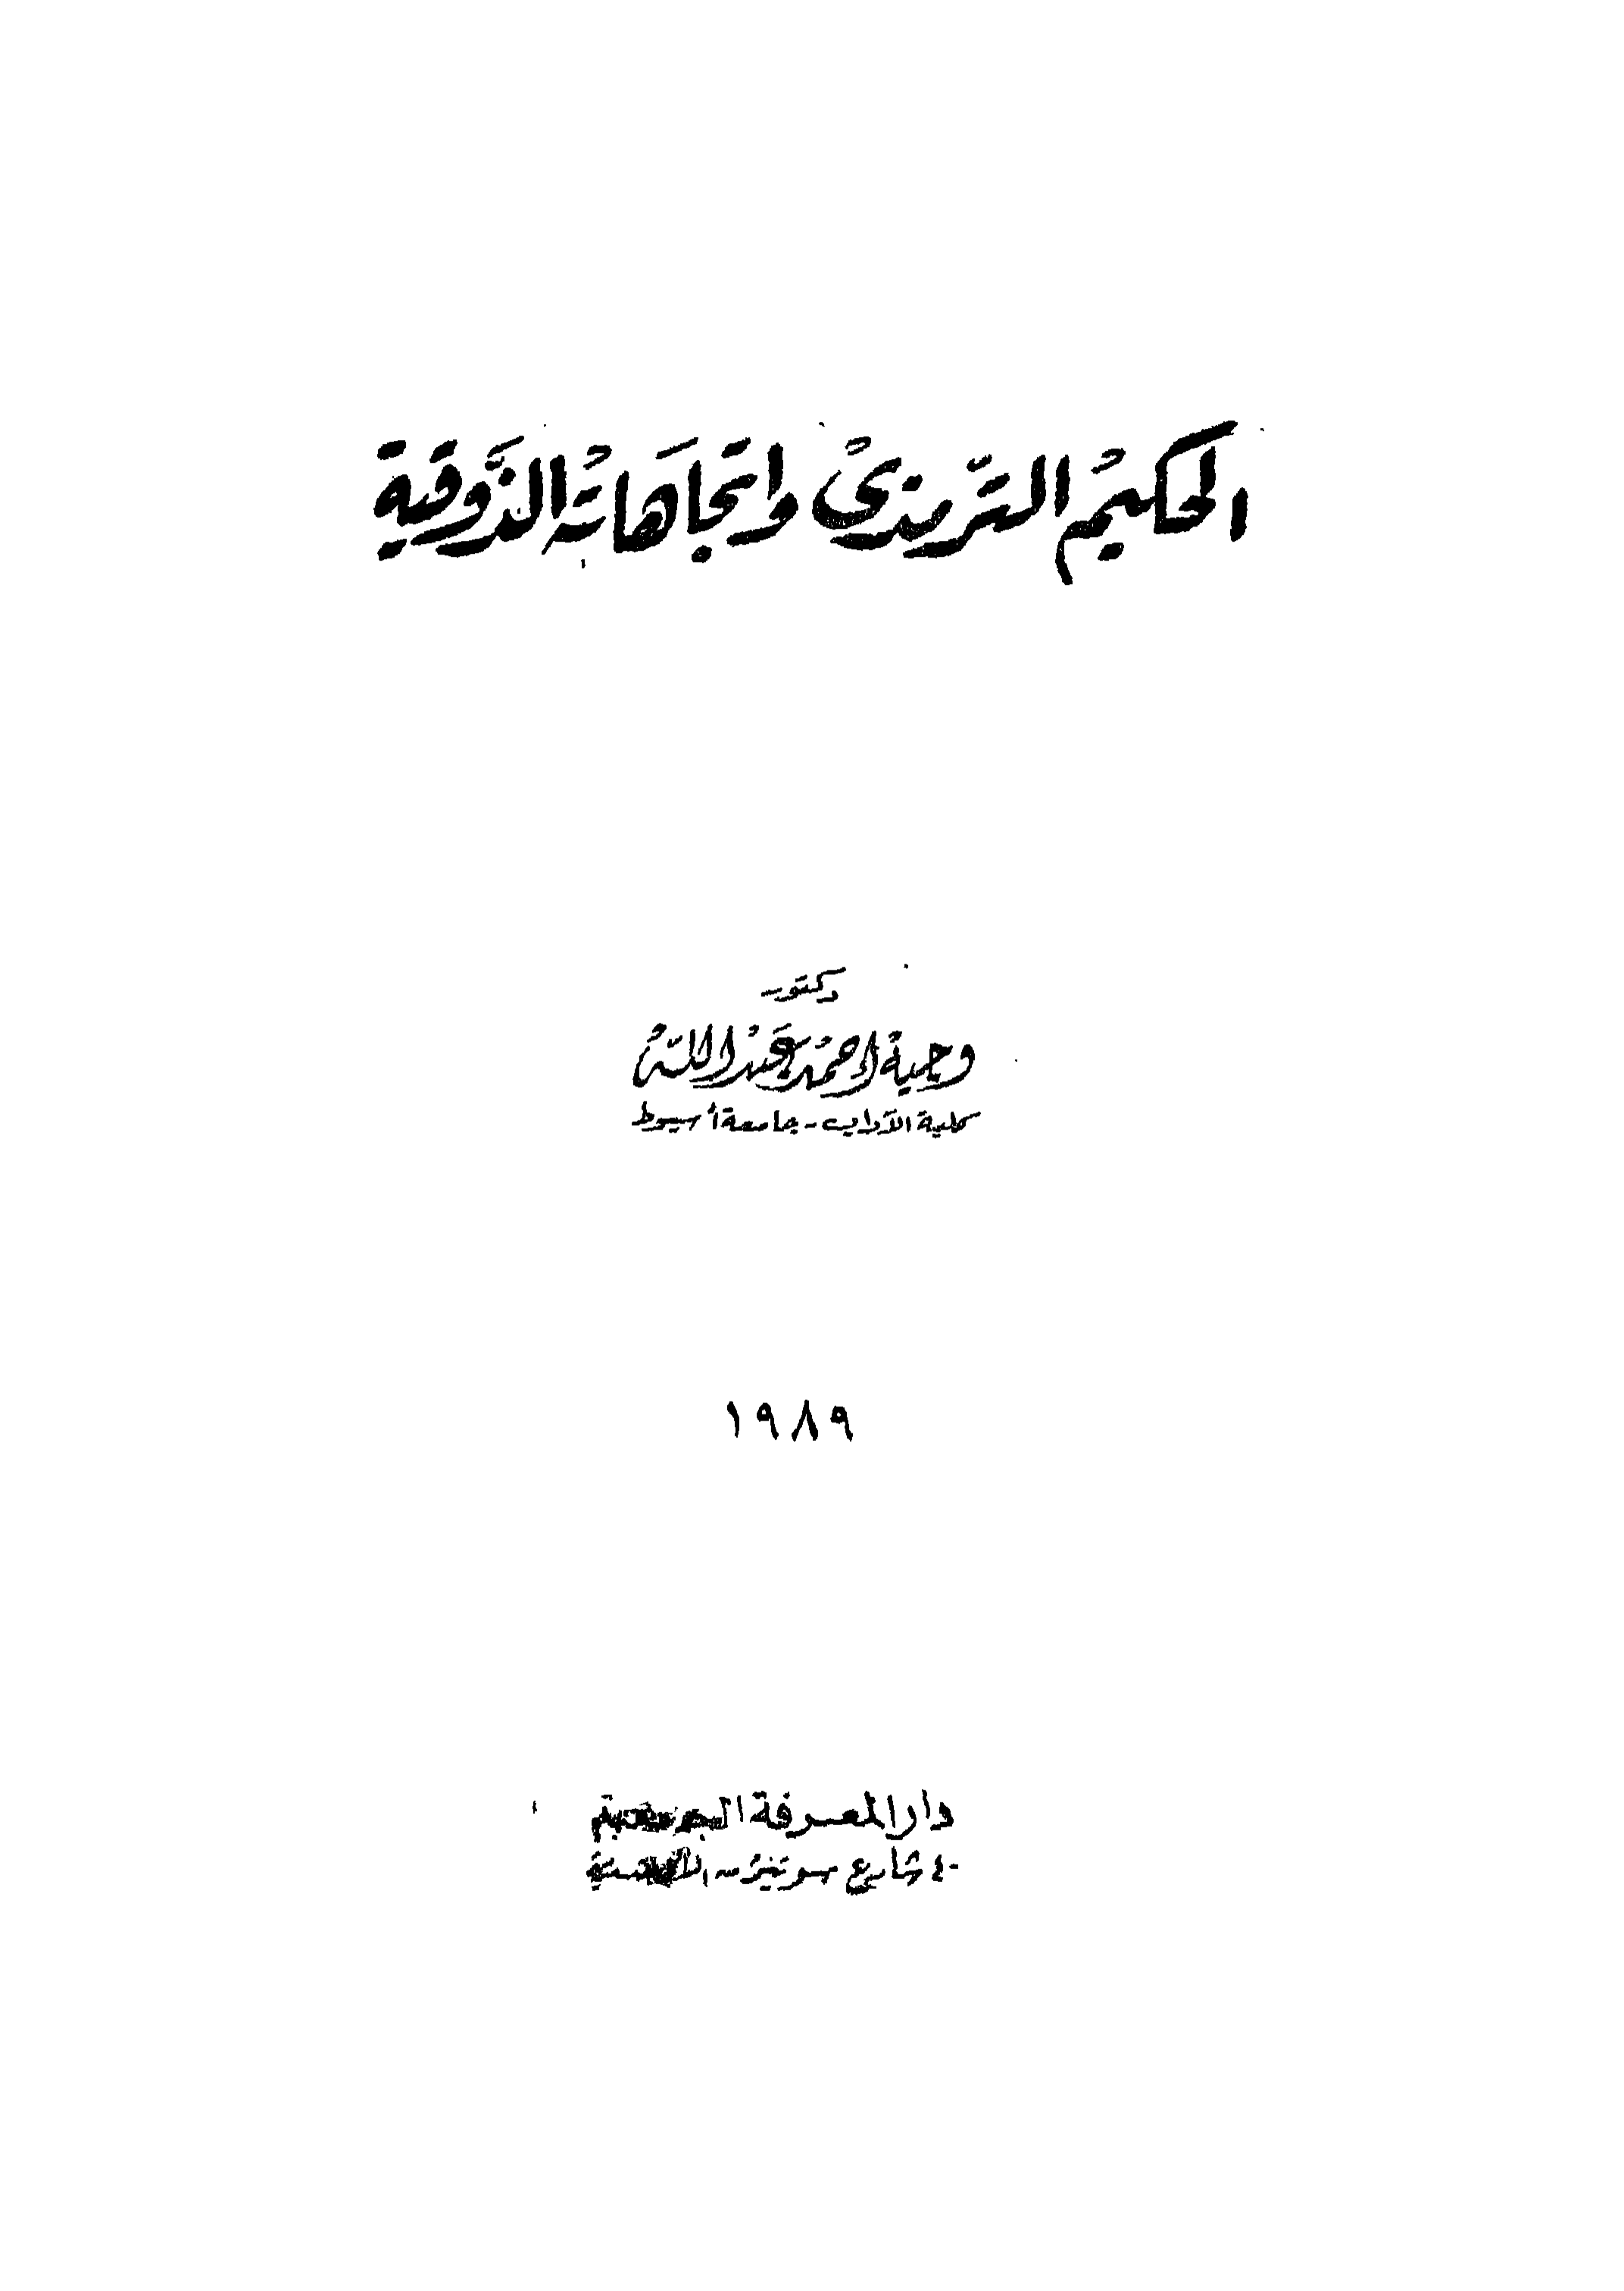 الحكيمُ التّرمذىْ واتجاهَاتهُ الذَّوقية
دكتور
وجيهْ احمُد عَبْد اللّهْ
كلية الآداب - جامعة أسيوط
١٩٨٩
دار المعرفة
٤٠ شارع سوتير